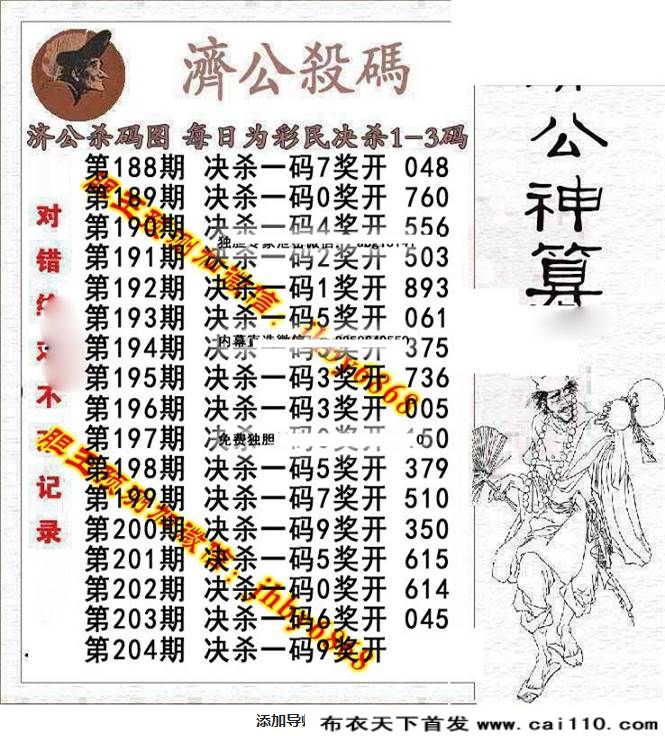 濟公殺碼
济公杀码图 每日为彩民决杀1-3码
第188期 决杀一码7奖开 048
第189期 决杀一码0奖开 760
第190期 决杀一码4奖开 556
第191期 决杀一码2奖开 503
第192期 决杀一码1奖开 893
第193期 决杀一码5奖开 061
第194期 决杀一码 奖开 375
第195期 决杀一码3奖开 736
第196期 决杀一码3奖开 005
第197期 决杀一码 奖开 50
第198期 决杀一码5奖开 379
第199期 决杀一码7奖开 510
第200期 决杀一码9奖开 350
第201期 决杀一码5奖开 615
第202期 决杀一码0奖开 614
第203期 决杀一码6奖开 045
第204期 决杀一码9奖开
对错 不 记录
免费独胆
胆王预测加微信：jnby6868
胆王预测加微信：jnby6868
公神算
添加导
布衣天下首发 www.cai110.com